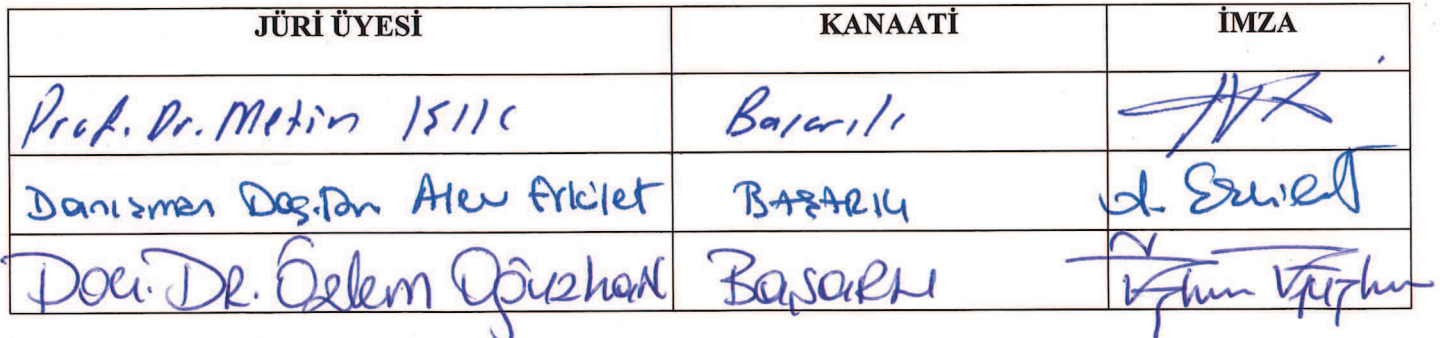 JÜRİ ÜYESİ KANAATİ İMZA
Prof. Dr. Metin IŞIK Başarılı
Danışman Doç. Dr. Alev Erkilet BAŞARILI A. Erkilet
Doç. Dr. Özlem Oğuzhan Başarılı